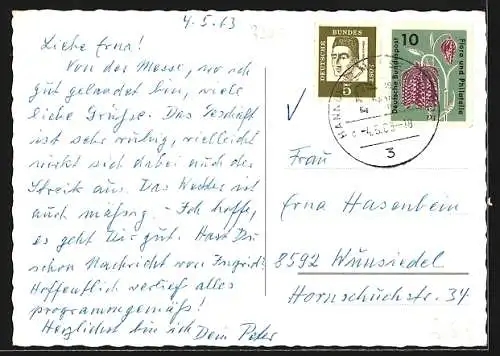 4.5.63
Liebe Erna!
Von der Messe, wo ich
gut gelandet bin, viele
liebe Grüße. Das Geschäft
ist sehr ruhig, vielleicht
wirkt sich dabei auch der
Streik aus. Das Wetter ist
auch mäßig. - Ich hoffe,
es geht Dir gut. Hast Du
schon Nachricht von Ingrid?
Hoffentlich verlief alles
programmgemäß!
Herzlichst bin ich Dein Peter
DEUTSCHE BUNDESPOST
5
10
Deutsche Bundespost
Flora und Philatelie
HANNO
-4.5.63-18
3
Frau
Erna Hasenbein
8592 Wunsiedel
Hornschuchstr. 34